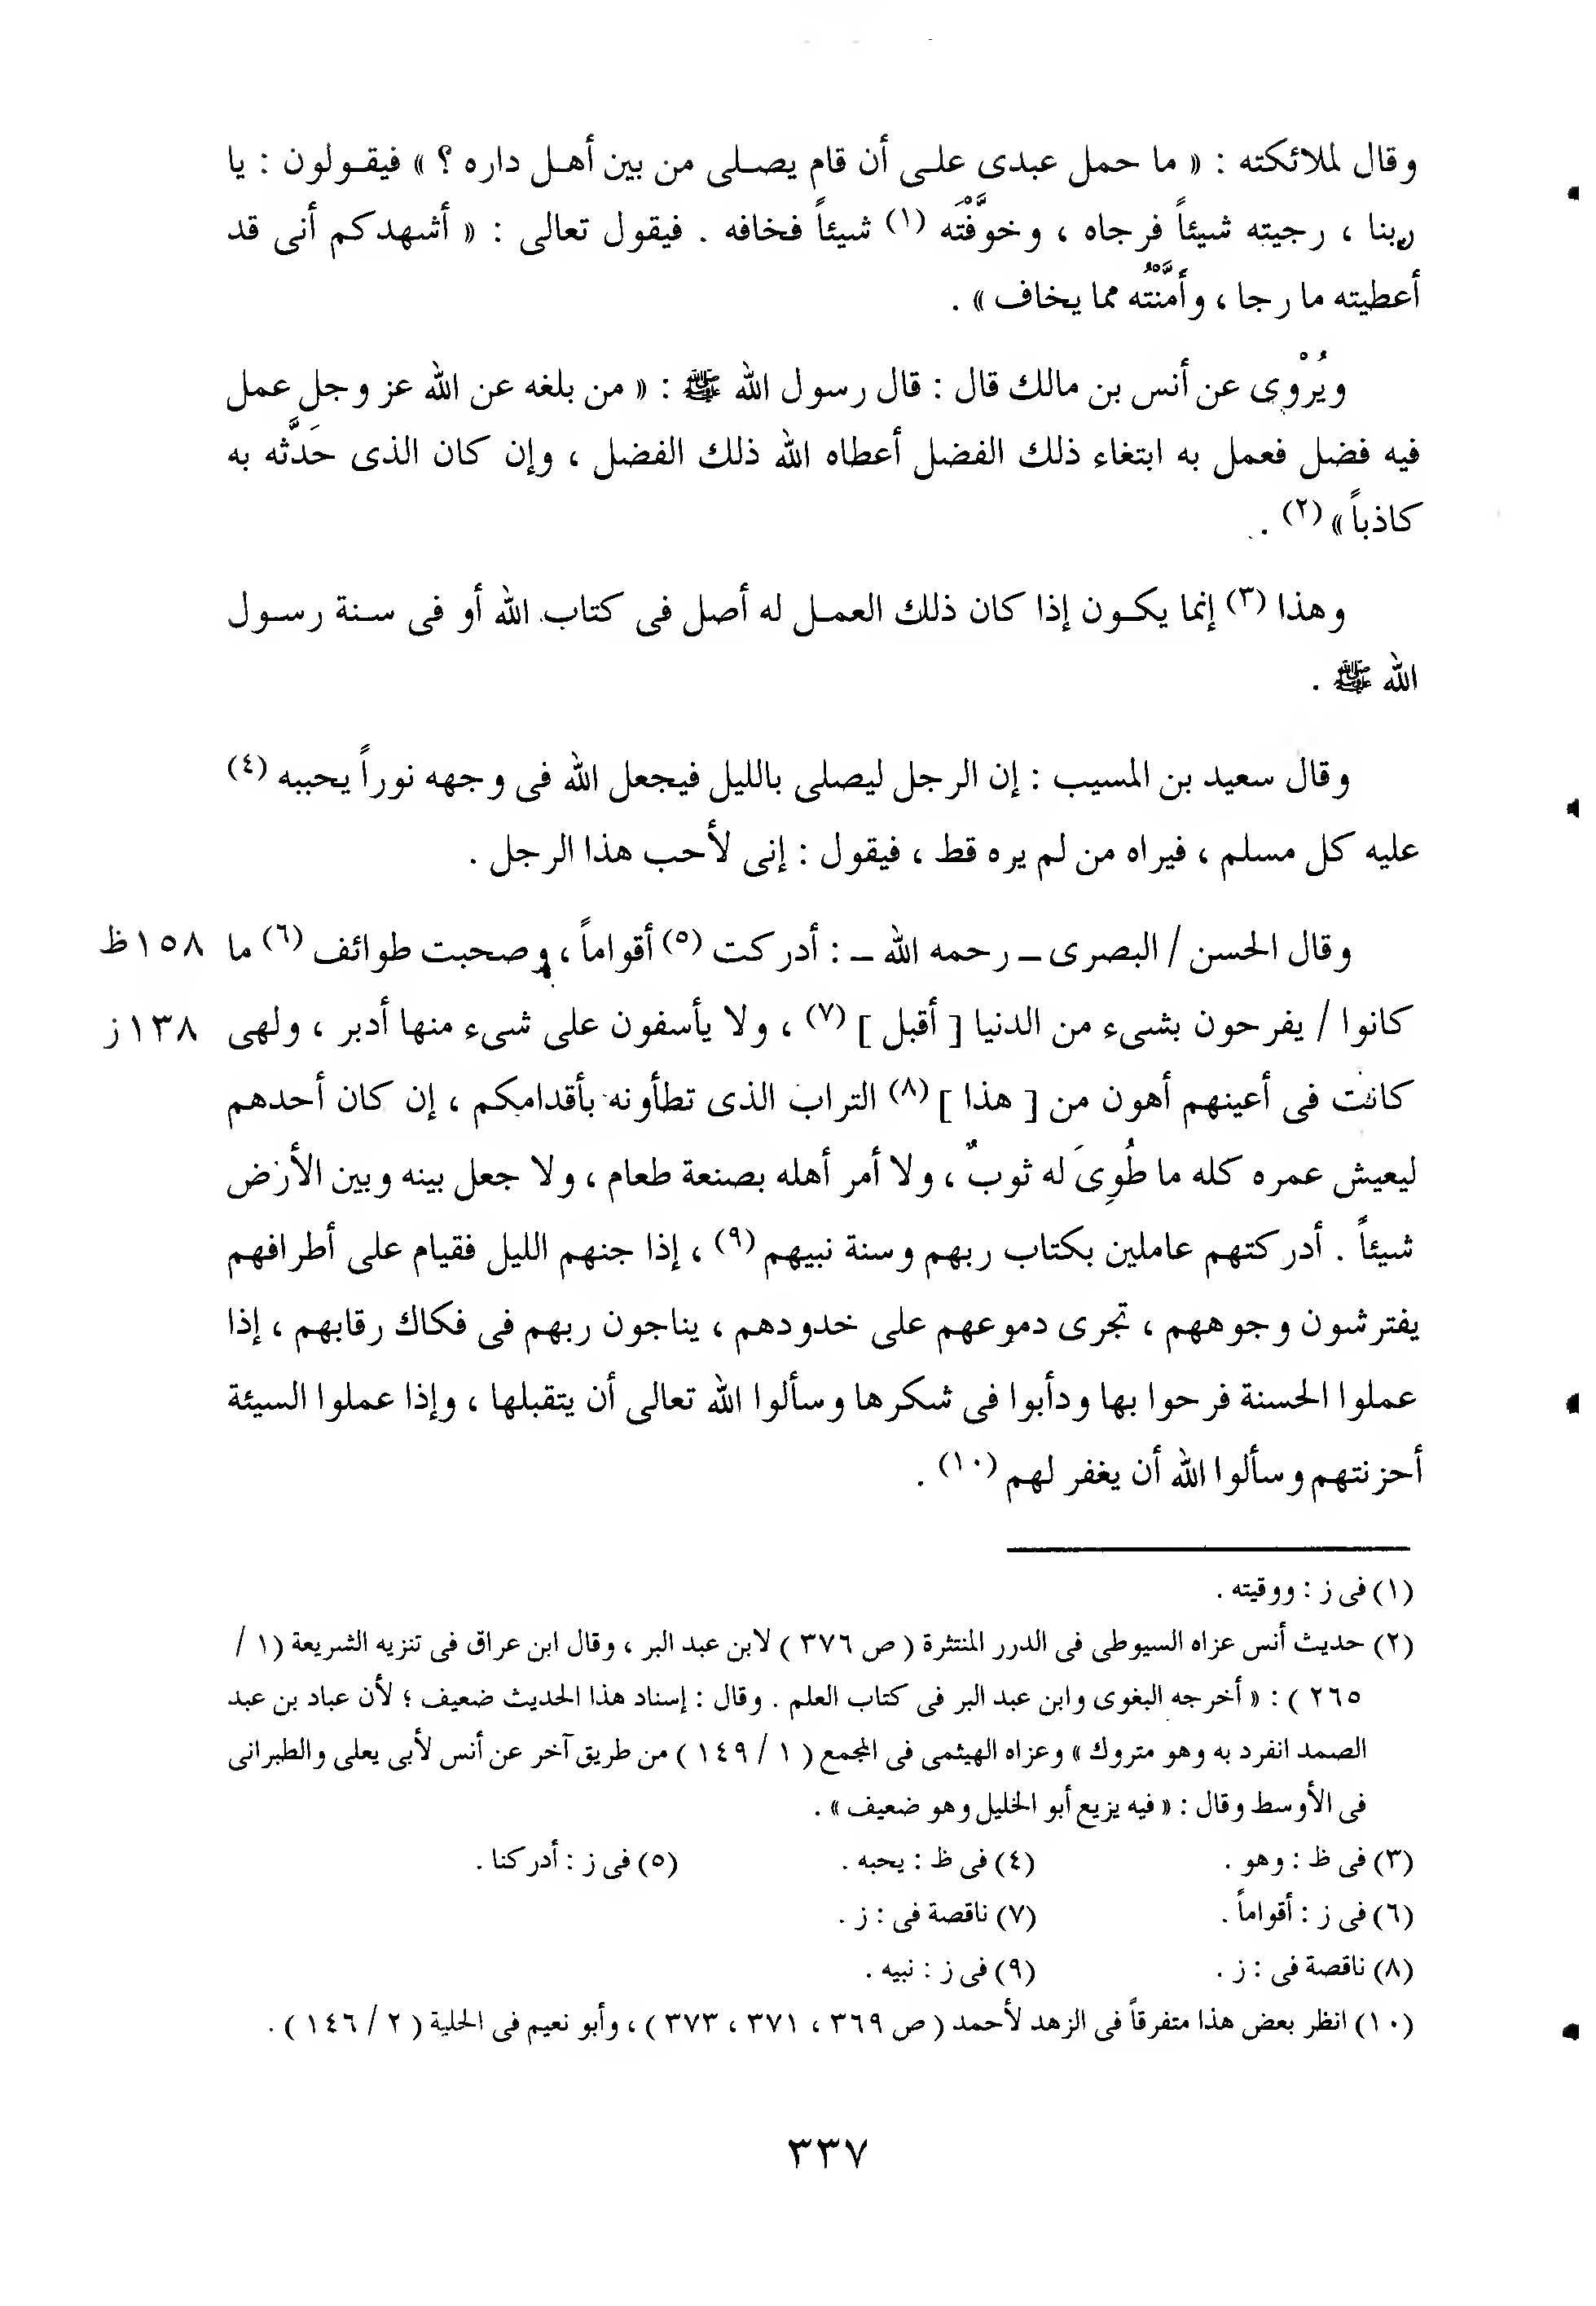 وقال لملائكته : « ما حمل عبدى على أن قام يصلى من بين أهل داره ؟ » فيقولون : يا
ربنا ، رجيته شيئاً فرجاه ، وخوَّفْتَه (١) شيئاً فخافه . فيقول تعالى : « أشهدكم أنى قد
أعطيته ما رجا ، وأَمَّنْتُه مما يخاف » .
ويُرْوِى عن أنس بن مالك قال : قال رسول الله ﷺ : « من بلغه عن الله عز وجل عمل
فيه فضل فعمل به ابتغاء ذلك الفضل أعطاه الله ذلك الفضل ، وإن كان الذى حَدَّثه به
كاذباً » (٢) .
وهذا (٣) إنما يكون إذا كان ذلك العمل له أصل فى كتاب الله أو فى سنة رسول
الله ﷺ .
وقال سعيد بن المسيب : إن الرجل ليصلى بالليل فيجعل الله فى وجهه نوراً يحببه (٤)
عليه كل مسلم ، فيراه من لم يره قط ، فيقول : إنى لأحب هذا الرجل .
وقال الحسن / البصرى ـ رحمه الله ـ : أدركت (٥) أقواماً ، وصحبت طوائف (٦) ما ١٥٨ظ
كانوا / يفرحون بشىء من الدنيا [ أقبل ] (٧) ، ولا يأسفون على شىء منها أدبر ، ولهى ١٣٨ز
كانت فى أعينهم أهون من [ هذا ] (٨) التراب الذى تطأونه بأقدامكم ، إن كان أحدهم
ليعيش عمره كله ما طُوِىَ له ثوبٌ ، ولا أمر أهله بصنعة طعام ، ولا جعل بينه وبين الأرض
شيئاً . أدركتهم عاملين بكتاب ربهم وسنة نبيهم (٩) ، إذا جنهم الليل فقيام على أطرافهم
يفترشون وجوههم ، تجرى دموعهم على خدودهم ، يناجون ربهم فى فكاك رقابهم ، إذا
عملوا الحسنة فرحوا بها ودأبوا فى شكرها وسألوا الله تعالى أن يتقبلها ، وإذا عملوا السيئة
أحزنتهم وسألوا الله أن يغفر لهم (١٠) .
(١) فى ز : ووقيته .
(٢) حديث أنس عزاه السيوطى فى الدرر المنتثرة ( ص ٣٧٦ ) لابن عبد البر ، وقال ابن عراق فى تنزيه الشريعة (١ /
٢٦٥ ) : « أخرجه البغوى وابن عبد البر فى كتاب العلم . وقال : إسناد هذا الحديث ضعيف ؛ لأن عباد بن عبد
الصمد انفرد به وهو متروك » وعزاه الهيثمى فى المجمع ( ١ / ١٤٩ ) من طريق آخر عن أنس لأبى يعلى والطبرانى
فى الأوسط وقال : « فيه يزيع أبو الخليل وهو ضعيف » .
(٣) فى ظ : وهو . (٤) فى ظ : يحبه . (٥) فى ز : أدركنا .
(٦) فى ز : أقواماً . (٧) ناقصة فى : ز .
(٨) ناقصة فى : ز . (٩) فى ز : نبيه .
(١٠) انظر بعض هذا متفرقاً فى الزهد لأحمد ( ص ٣٦٩ ، ٣٧١ ، ٣٧٣ ) ، وأبو نعيم فى الحلية ( ٢ / ١٤٦ ) .
٣٣٧